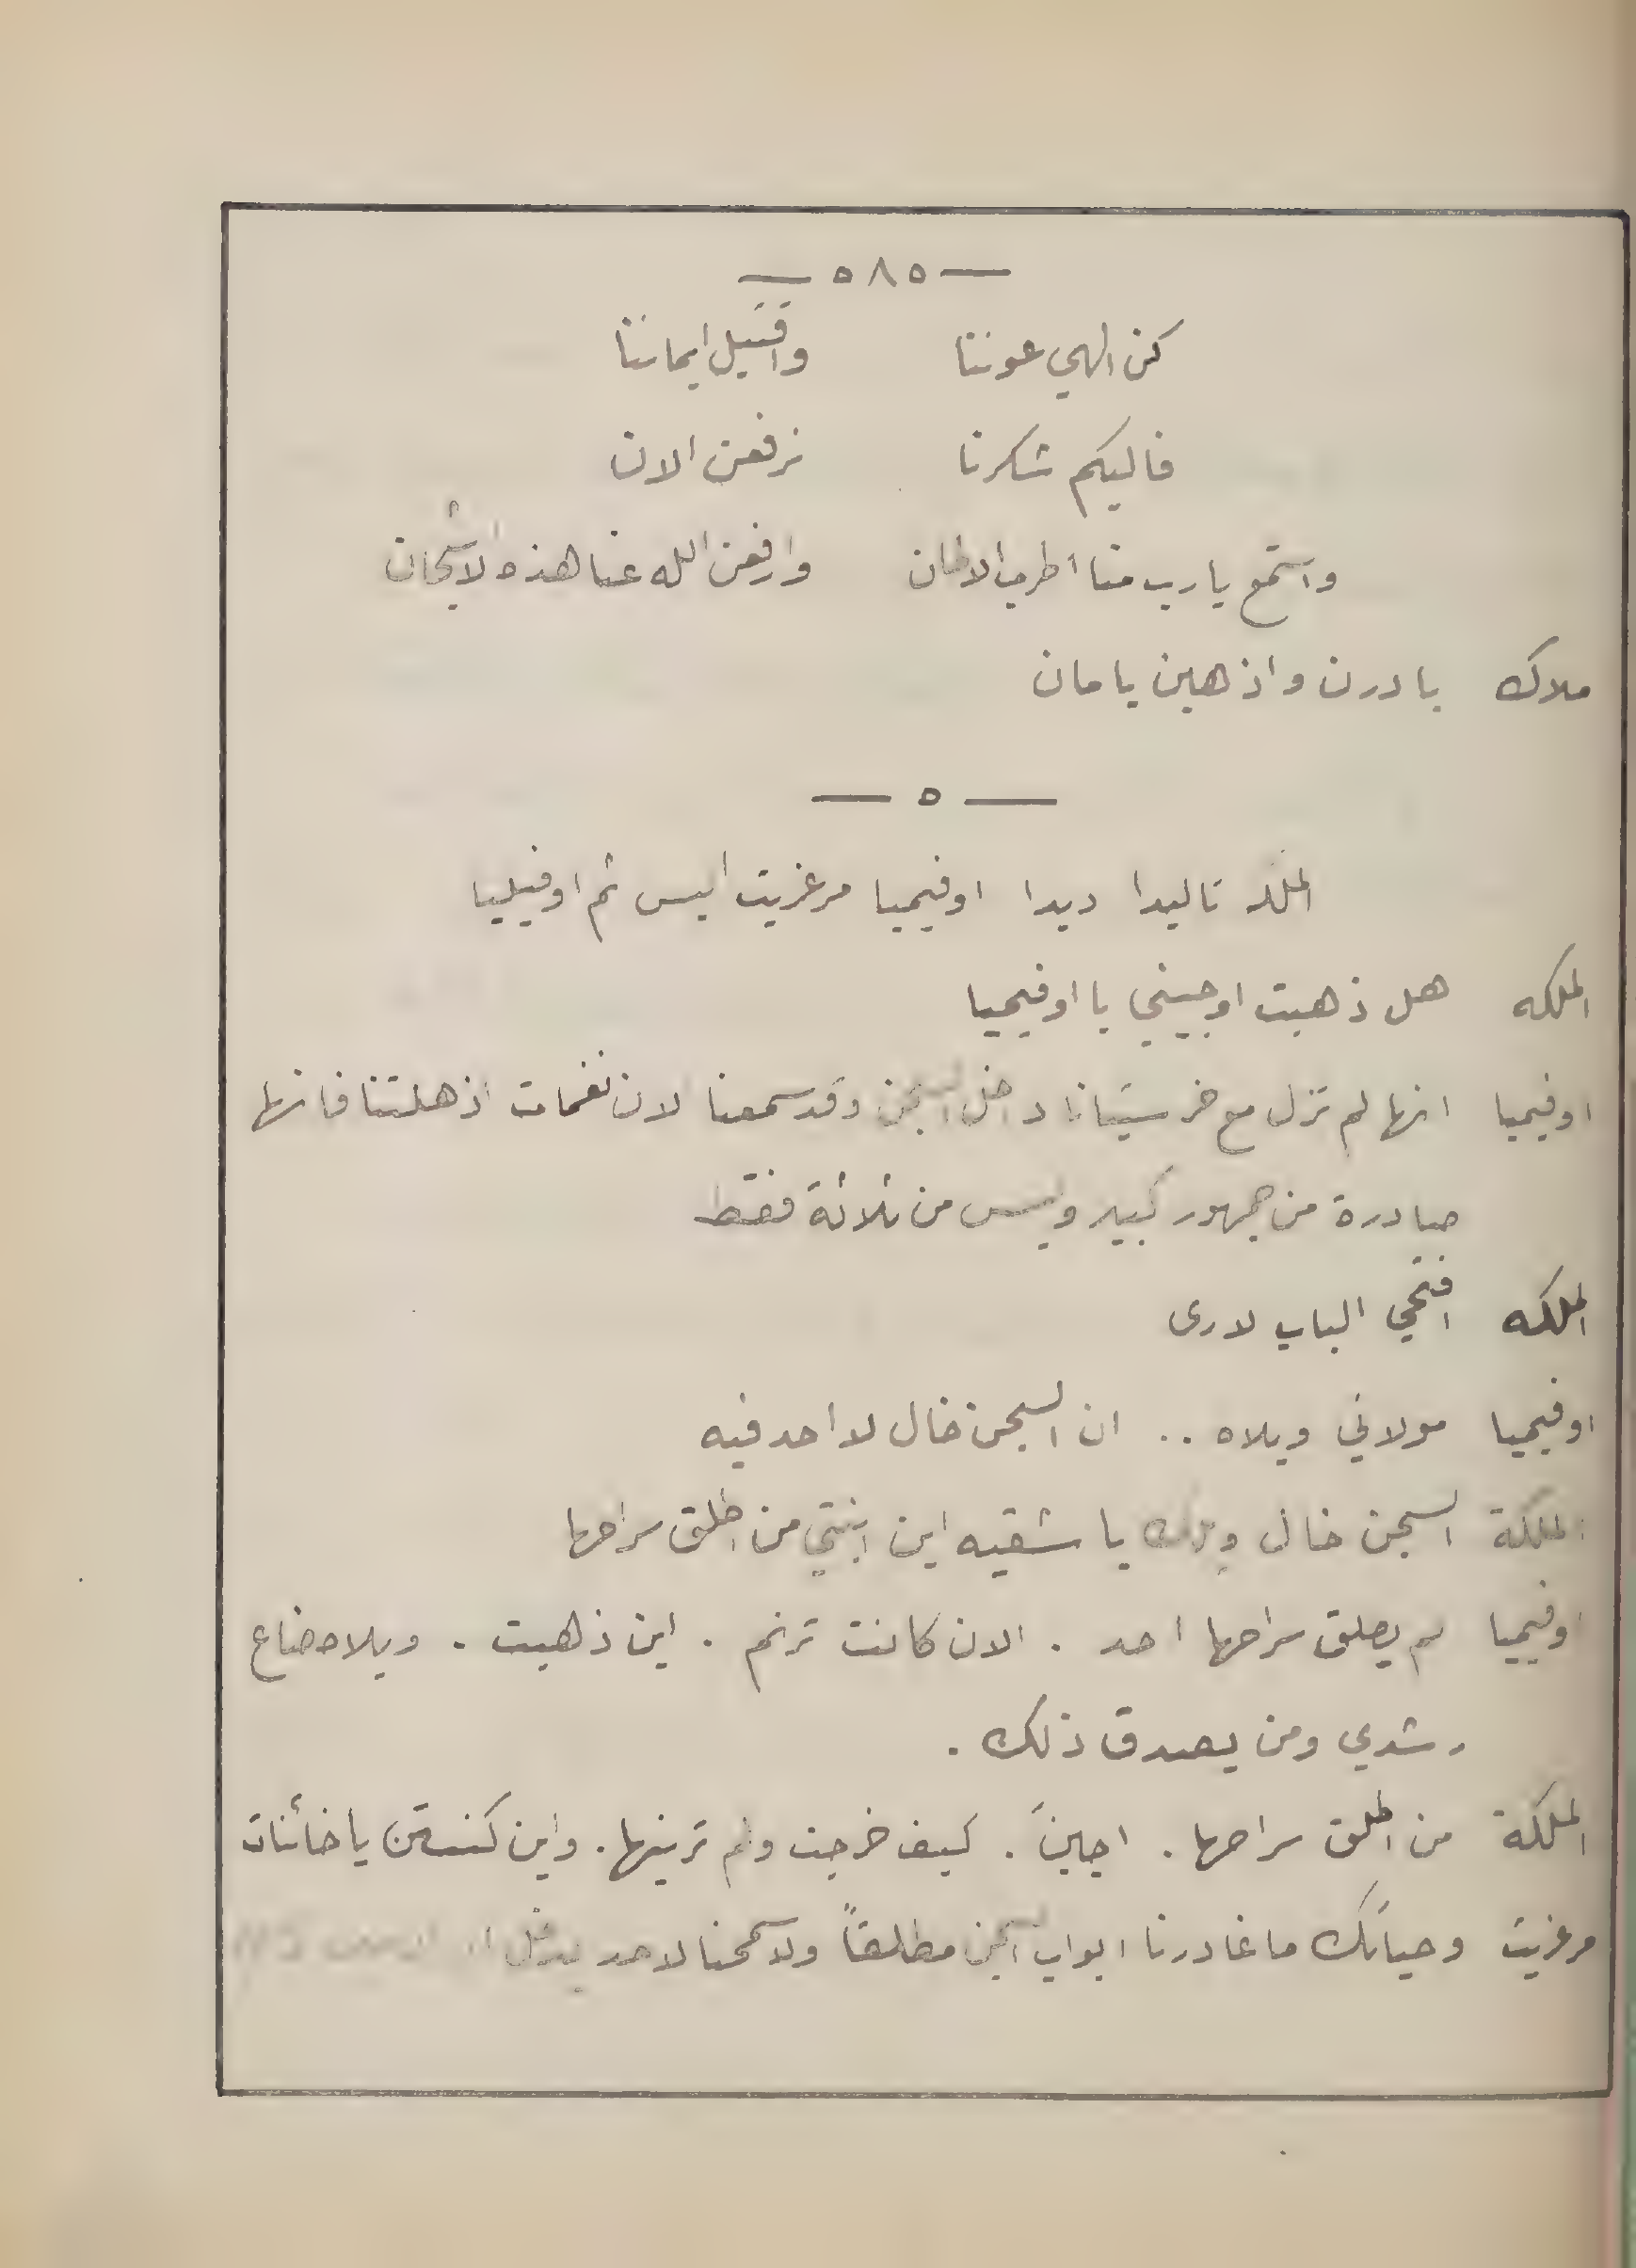 — ٥٨٥ —
كن الهي عوننا واقبل ايماننا
فاليكم شكرنا نرفعن الان
واستمع يا رب منا اطرب الالحان وارفعن الله عنا هذه الاشجان
ملاك بادرن واذهبن بامان
— ٥ —
الملكه تاليدا ديدا اوفيميا مرغريت ايس ثم اوفيليا
الملكه هل ذهبت اوجيني يا اوفيميا
اوفيميا انها لم تزل مع خرستيانا داخل السجن وقد سمعنا لان نغمات اذهلتنا فانها
صادرة من جمهور كبير وليس من ثلاثة فقط
الملكه افتحي الباب لارى
اوفيميا مولاتي ويلاه .. ان السجن خال لا احد فيه
الملكة السجن خال ويلك يا شقيه اين ابنتي من اطلق سراحها
اوفيميا لم يطلق سراحها احد . الان كانت ترنم . اين ذهبت . ويلاه ضاع
رشدي ومن يصدق ذلك .
الملكة من اطلق سراحها . اجبنَ . كيف خرجت ولم ترينها . واين كنتن يا خائنات
مرغريت وحياتك ما غادرنا ابواب السجن مطلقاً ولا سمحنا لاحد يدخل